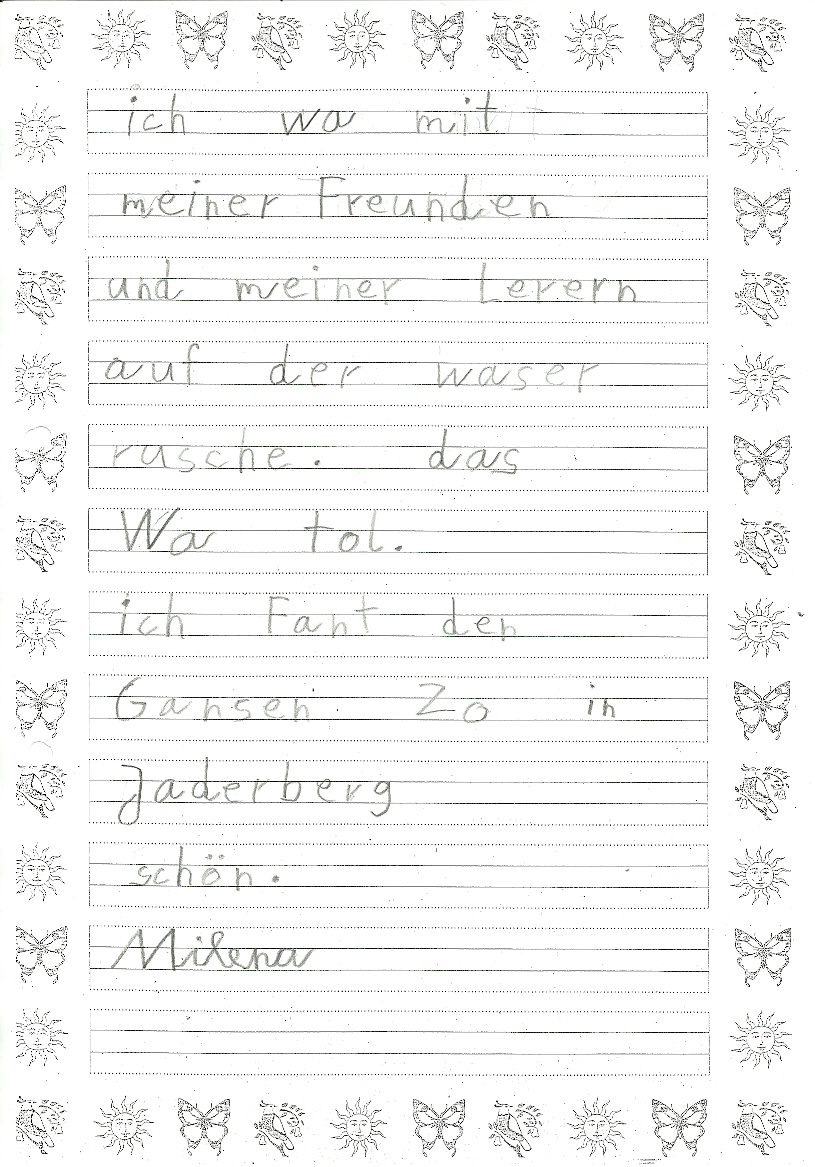 ich wa mit
meiner Freunden
und meiner Lerern
auf der waser
rusche. das
Wa tol.
ich Fant den
Gansen Zo in
Jaderberg
schön.
Milena